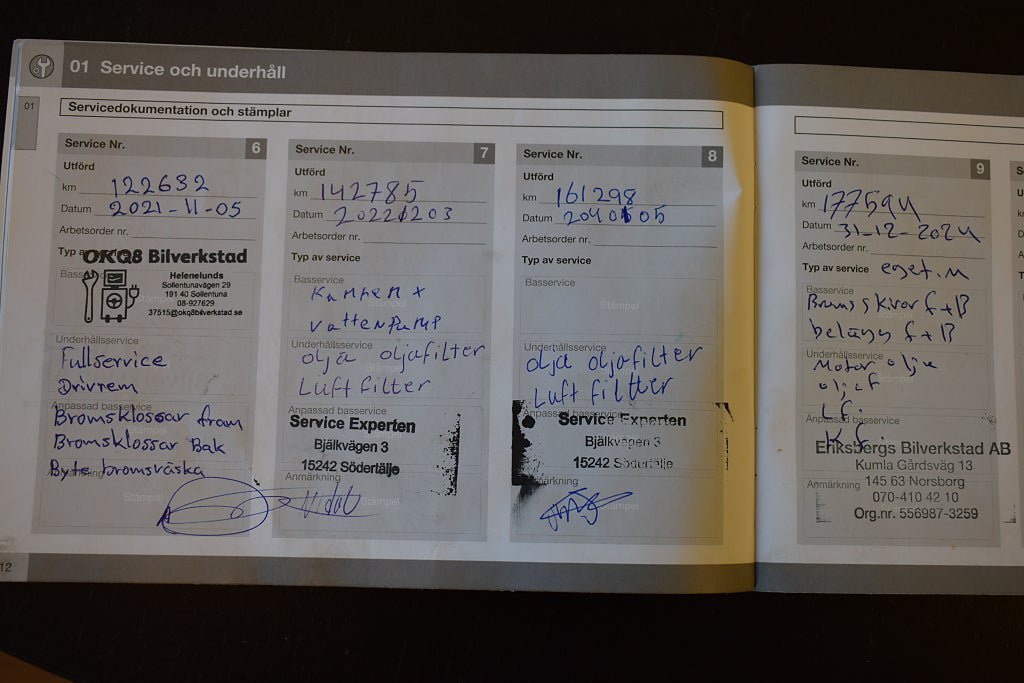 01 Service och underhåll
01
Servicedokumentation och stämplar
Service Nr. 6
Utförd
km 122632
Datum 2021-11-05
Arbetsorder nr.
Typ av
OKQ8 Bilverkstad
Helenelunds
Sollentunavägen 29
191 40 Sollentuna
08-927629
37515@okq8bilverkstad.se
Underhållsservice
Fullservice
Drivrem
Anpassad basservice
Bromsklossar fram
Bromsklossar Bak
Byte bromsväska
Stämpel
Service Nr. 7
Utförd
km 142785
Datum
Arbetsorder nr.
Typ av service
Basservice
Stämpel
Kamrem +
vattenpump
Underhållsservice
olja oljafilter
Luftfilter
Anpassad basservice
Service Experten
Bjälkvägen 3
15242 Södertälje
Anmärkning
Stämpel
Service Nr. 8
Utförd
km 161298
Datum
Arbetsorder nr.
Typ av service
Basservice
Stämpel
Underhållsservice
olja oljafilter
Luft filtter
Anpassad basservice
Service Experten
Bjälkvägen 3
15242 Södertälje
Anmärkning
Stämpel
Service Nr. 9
Utförd
km 177594
Datum 31-12-2024
Arbetsorder nr.
Typ av service
Basservice
Bromsskivor f+B
belägg f+B
Underhållsservice
Motor olja
olje f
Lf.
Anpassad basservice
K f.
Eriksbergs Bilverkstad AB
Kumla Gårdsväg 13
145 63 Norsborg
070-410 42 10
Org.nr. 556987-3259
Anmärkning
12